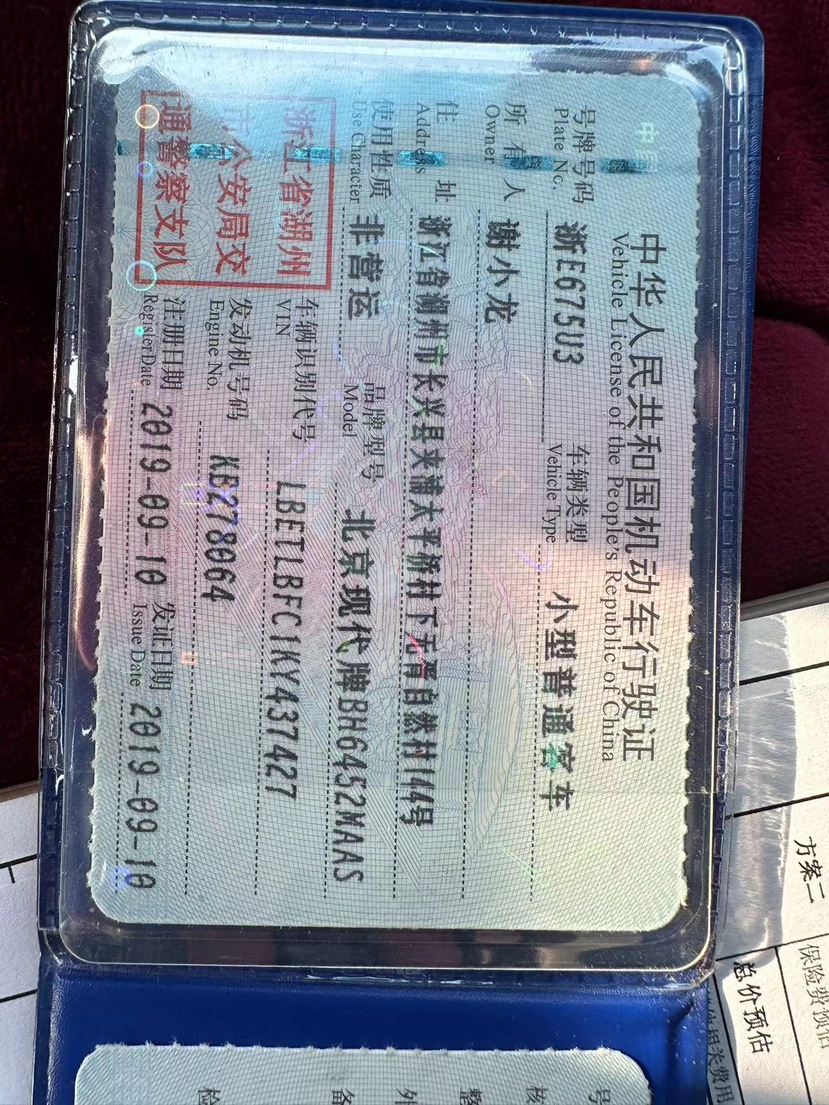 中华人民共和国机动车行驶证
Vehicle License of the People's Republic of China
号牌号码 浙E675U3 车辆类型 小型普通客车
Plate No. Vehicle Type
所有人 谢小龙
Owner
住址 浙江省湖州市长兴县夹浦太平桥村下无胥自然村144号
Address
使用性质 非营运 品牌型号 北京现代牌BH6452MAAS
Use Character Model
浙江省湖州
市公安局交
通警察支队
车辆识别代号 LBETLBFC1KY437427
VIN
发动机号码 KB278064
Engine No.
注册日期 2019-09-10 发证日期 2019-09-10
Register Date Issue Date
方案二
保险费预估
总价预估
号
核
整
外
备
检